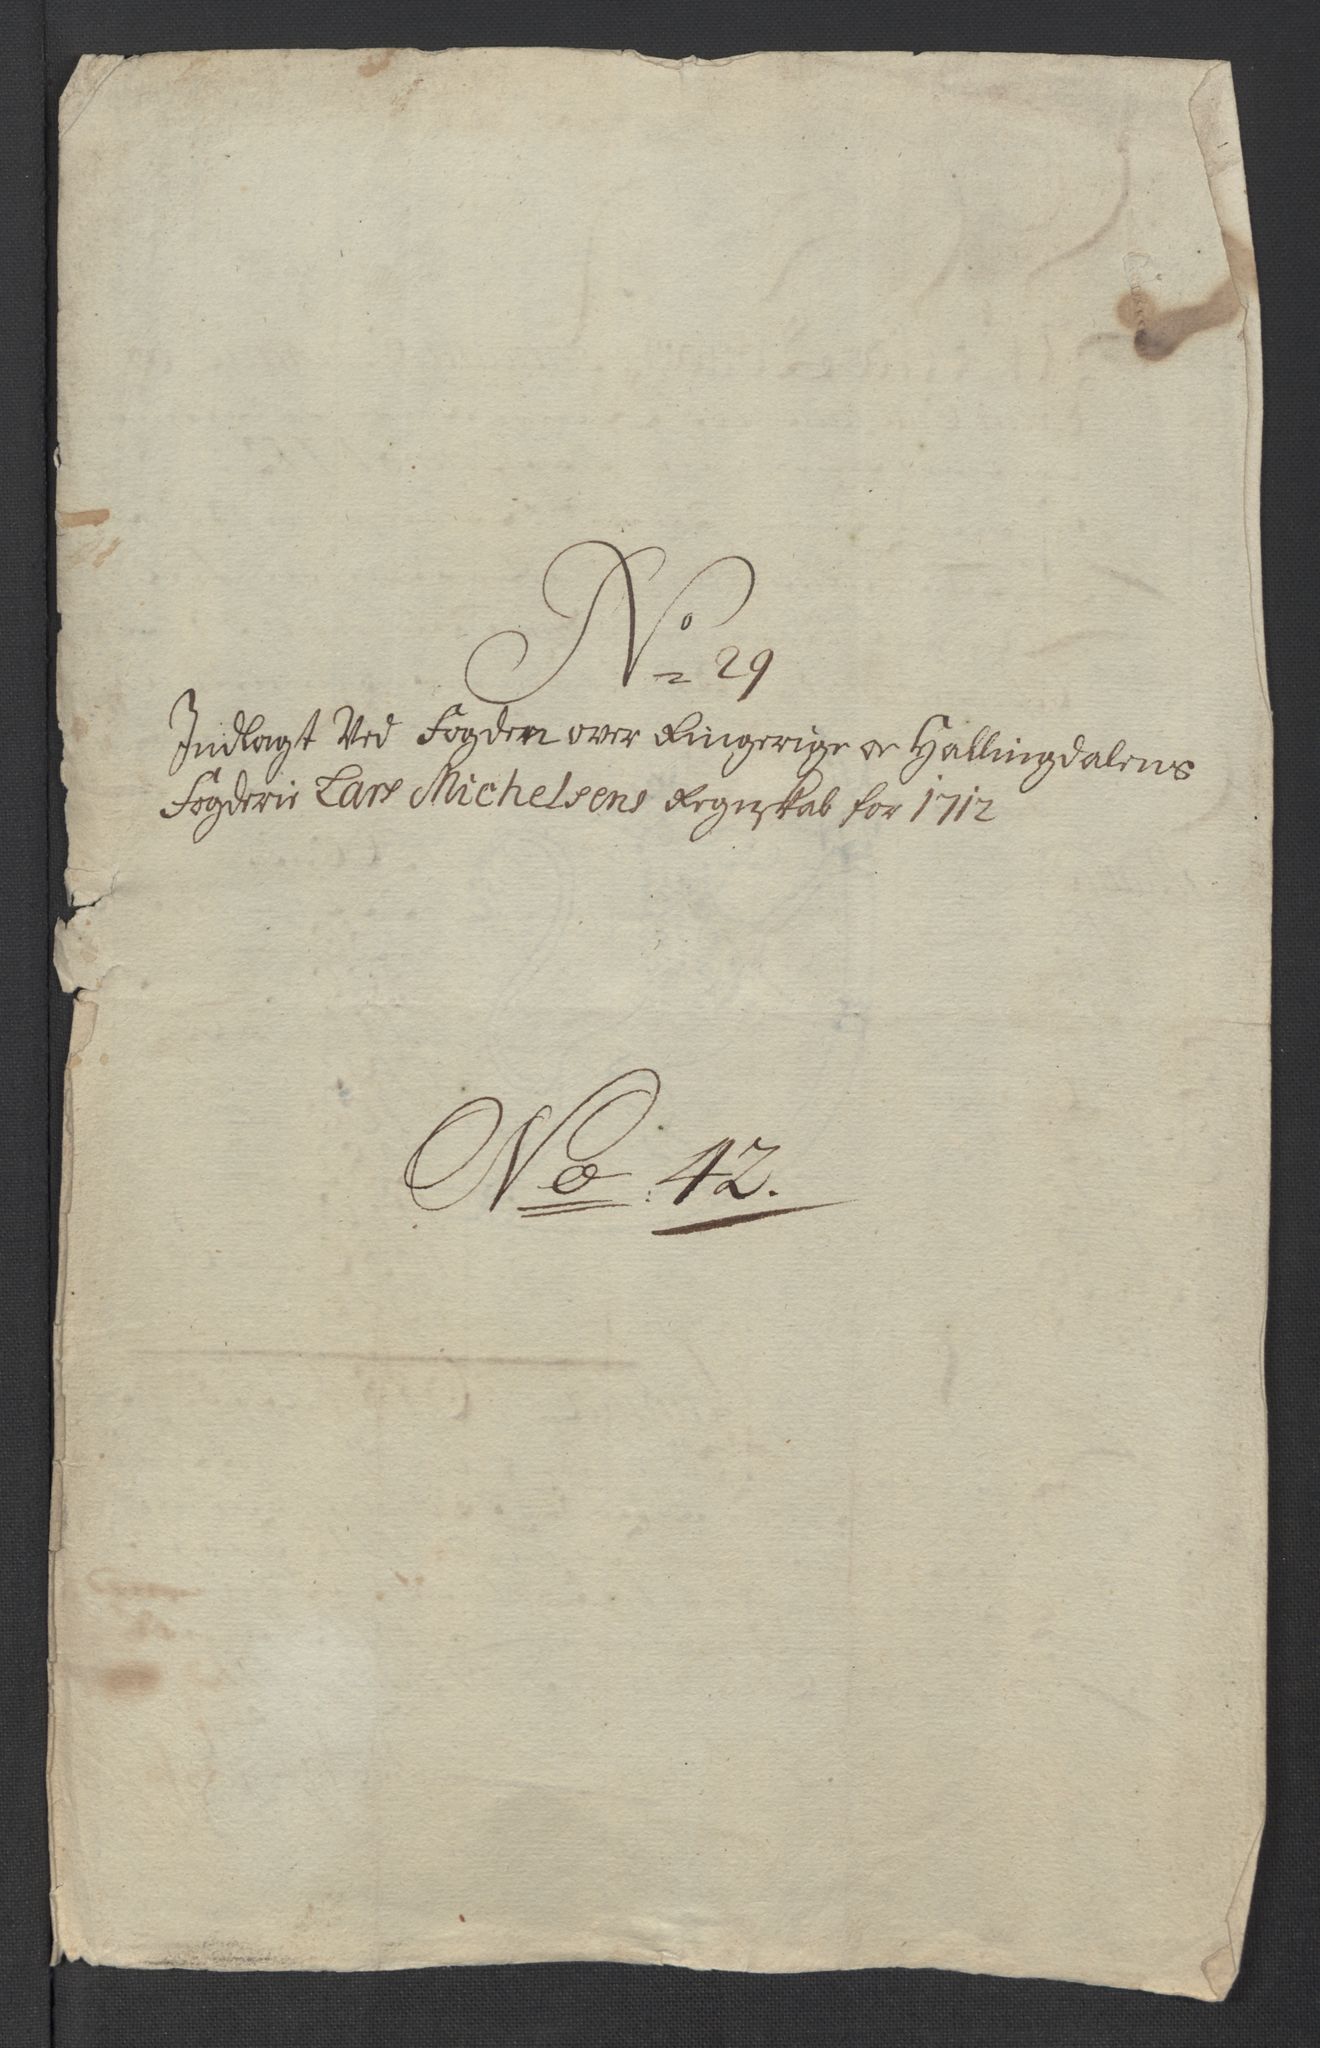 No 29
Indlagt Ved Fogden over Ringerige oc Hallingdalens
Fogderie Lars Michelsens Regnskab for 1712
No. 42.